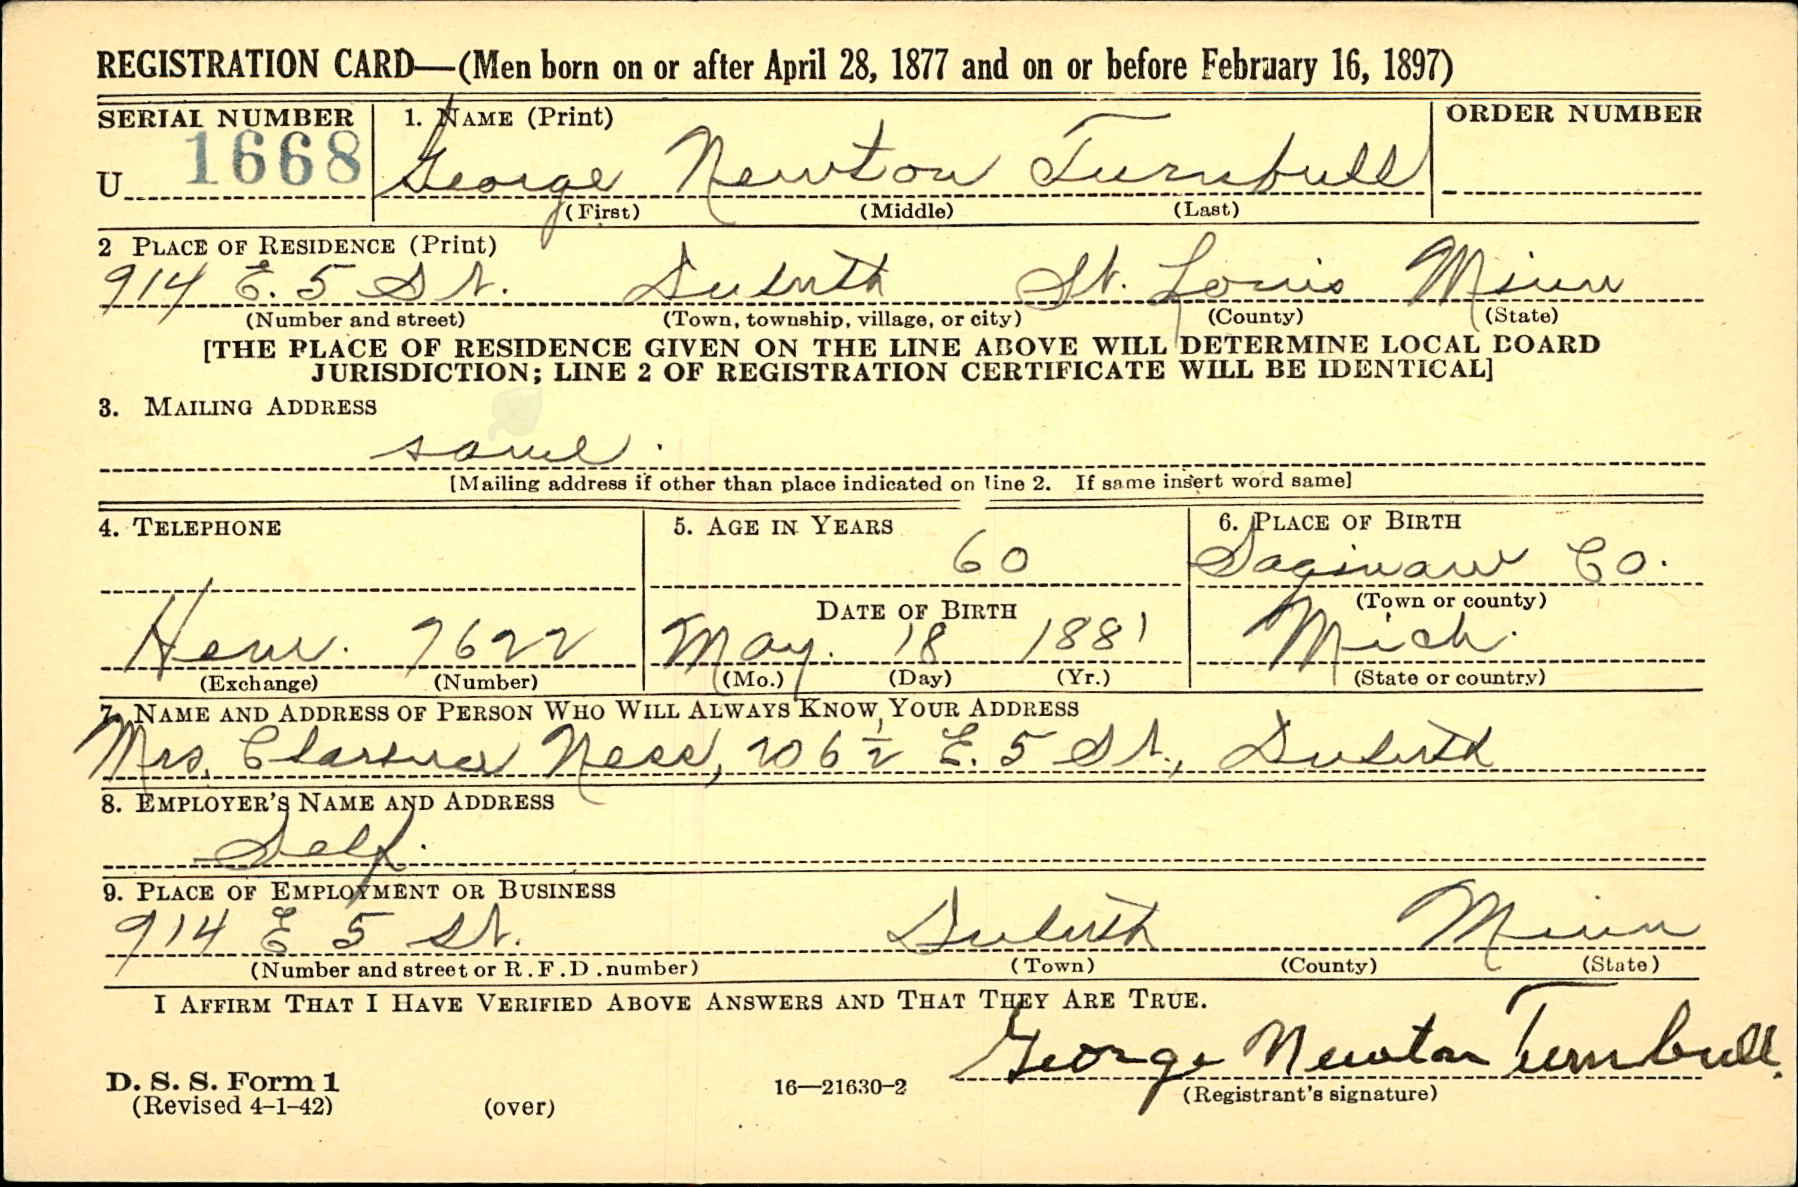 REGISTRATION CARD—(Men born on or after April 28, 1877 and on or before February 16, 1897)
SERIAL NUMBER 1. NAME (Print) ORDER NUMBER
U 1668 George Newton Turnbull
(First) (Middle) (Last)
2 PLACE OF RESIDENCE (Print)
914 E. 5 St. Duluth St. Louis Minn
(Number and street) (Town, township, village, or city) (County) (State)
[THE PLACE OF RESIDENCE GIVEN ON THE LINE ABOVE WILL DETERMINE LOCAL BOARD
JURISDICTION; LINE 2 OF REGISTRATION CERTIFICATE WILL BE IDENTICAL]
3. MAILING ADDRESS
same.
[Mailing address if other than place indicated on line 2. If same insert word same]
4. TELEPHONE 5. AGE IN YEARS 6. PLACE OF BIRTH
60 Saginaw Co.
DATE OF BIRTH (Town or county)
Hem. 7622 May. 18 1881 Mich.
(Exchange) (Number) (Mo.) (Day) (Yr.) (State or country)
7. NAME AND ADDRESS OF PERSON WHO WILL ALWAYS KNOW YOUR ADDRESS
Mrs. Clarence Ness, 206 1/2 E. 5 St., Duluth
8. EMPLOYER'S NAME AND ADDRESS
Self.
9. PLACE OF EMPLOYMENT OR BUSINESS
914 E 5 St. Duluth Minn
(Number and street or R.F.D. number) (Town) (County) (State)
I AFFIRM THAT I HAVE VERIFIED ABOVE ANSWERS AND THAT THEY ARE TRUE.
George Newton Turnbull.
D. S. S. Form 1 16—21630-2 (Registrant's signature)
(Revised 4-1-42) (over)